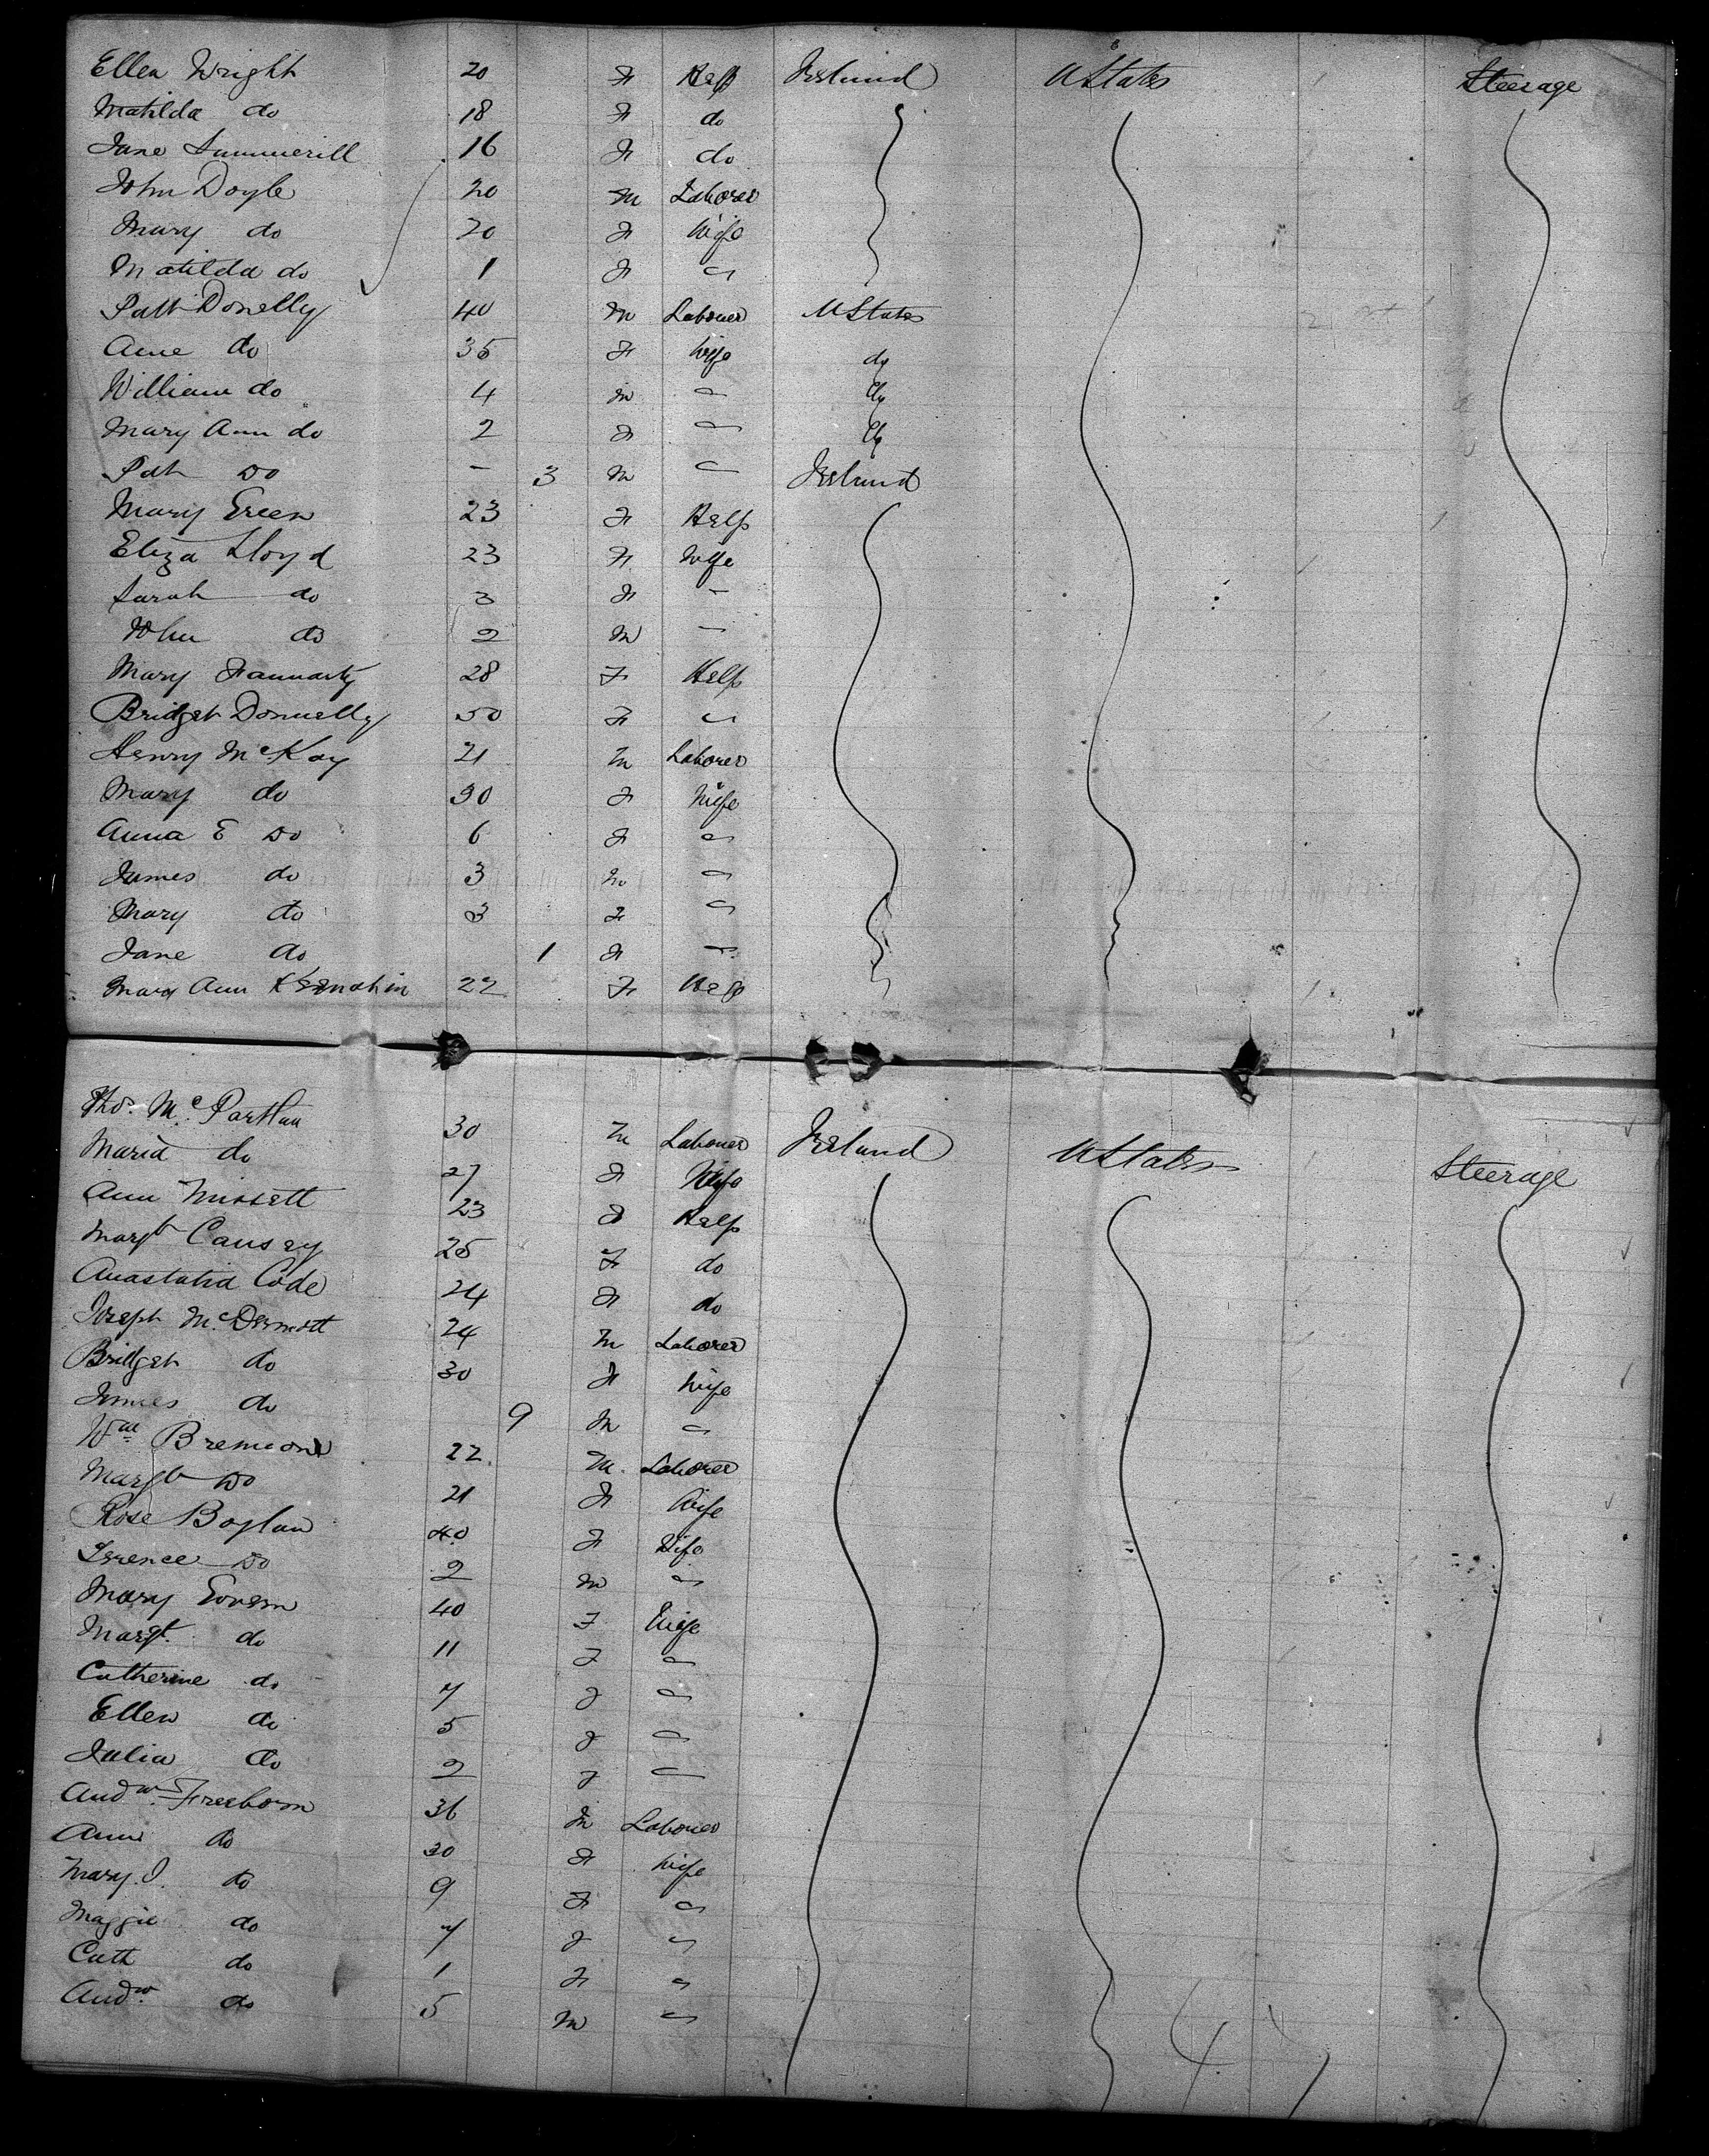 Ellen Wright 20 F Help Ireland U States Steerage
Matilda do 18 F do
Jane Summerill 16 F do
John Doyle 20 M Laborer
Mary do 20 F Wife
Matilda do 1 F "
Patt Donelly 40 M Laborer U States
Anne do 35 F Wife do
William do 4 M " do
Mary Ann do 2 F " do
Pat Do - 3 M " Ireland
Mary Green 23 F Help
Eliza Lloyd 23 F Wife
Sarah do 3 F -
John do 2 M -
Mary 28 F Help
Bridget Donnelly 50 F "
Henry McKay 21 M Laborer
Mary do 30 F Wife
Anna E Do 6 F "
James do 3 M "
Mary do 3 F "
Jane do 1 F "
Mary Ann 22 F Help
Tho. Mc. Partlan 30 M Laborer Ireland U States Steerage
Maria do 27 F Wife
Ann Missett 23 F Help
Margt Causey 25 F do
Anastatia Code 24 F do
Joseph McDermott 24 M Laborer
Bridget do 30 F Wife
James do 9 M "
Wm 22 M. Laborer
Margt Do 21 F Wife
Rose Boylan 40 F Wife
Terence Do 2 M "
Mary Govern 40 F Wife
Margt. do 11 F "
Catherine do 7 F "
Ellen do 5 F "
Julia do 2 F "
Andw. Freeborn 36 M Laborer
Ann do 30 F Wife
Mary J. do 9 F "
Maggie do 7 F "
Cath do 1 F "
Andw. do 5 M "
47